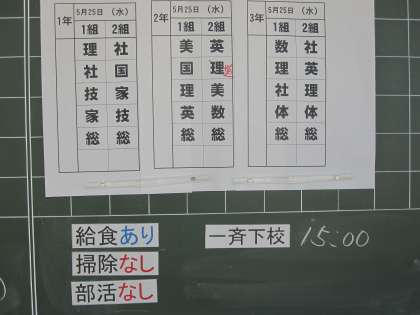 1年 5月25日 (水)
1組 2組
理 社
社 国
技 家
家 技
総 総
2年 5月25日 (水)
1組 2組
美 英
国 理
理 美
英 数
総 総
3年 5月25日 (水)
1組 2組
数 社
理 英
社 理
体 体
総 総
給食あり
掃除なし
部活なし
一斉下校 15:00